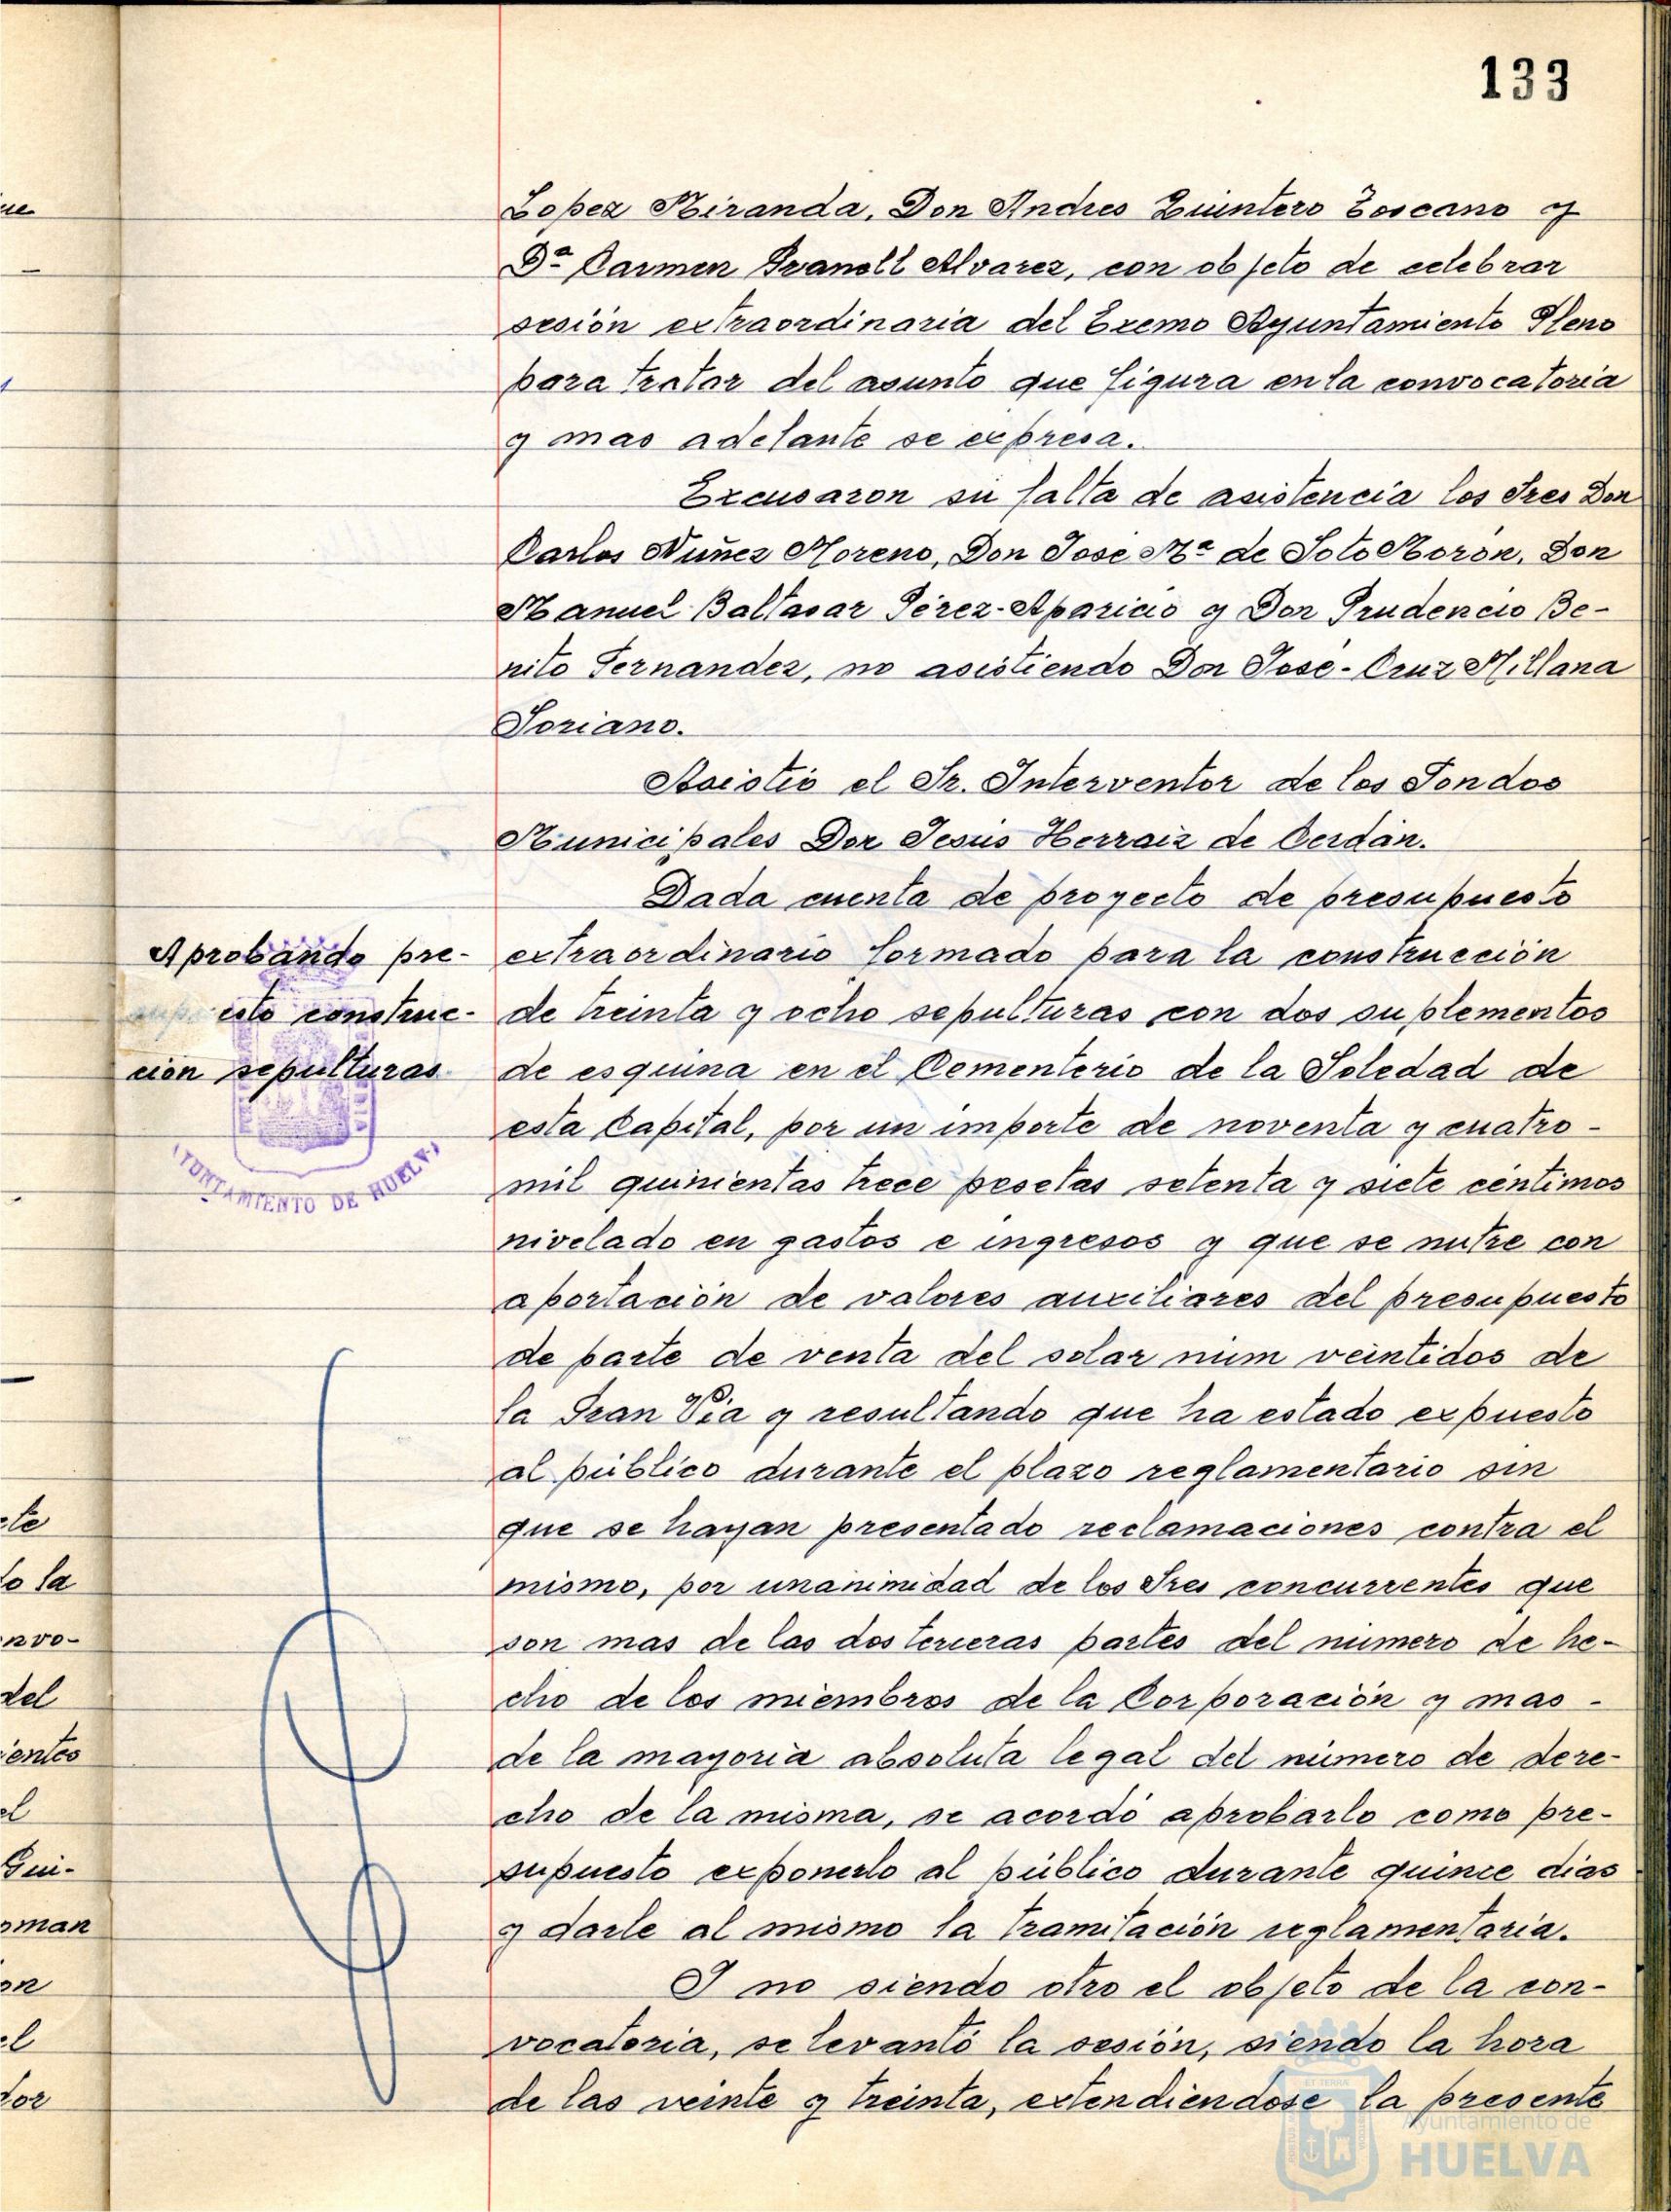 133
Lopez Miranda, Don Andres Quintero Toscano y
Dª Carmen Pranoll Alvarez, con objeto de celebrar
sesión extraordinaria del Excmo Ayuntamiento Pleno
para tratar del asunto que figura en la convocatoria
y mas adelante se expresa.
Excusaron su falta de asistencia los Sres Don
Carlos Nuñez Moreno, Don Jose Mª de Soto Morón, Don
Manuel Baltasar Pérez-Aparicio y Don Prudencio Be-
nito Fernandez, no asistiendo Don José-Cruz Millana
Soriano.
Asistió el Sr. Interventor de los Fondos
Municipales Don Jesus Herraiz de Cerdán.
Dada cuenta de proyecto de presupuesto
Aprobando pre-
supuesto construc-
cion sepulturas
extraordinario formado para la construcción
de treinta y ocho sepulturas con dos suplementos
de esquina en el Cementerio de la Soledad de
esta Capital, por un importe de noventa y cuatro-
mil quinientas trece pesetas setenta y siete céntimos
nivelado en gastos e ingresos y que se nutre con
aportación de valores auxiliares del presupuesto
de parte de venta del solar num veintidos de
la Gran Via y resultando que ha estado expuesto
al público durante el plazo reglamentario sin
que se hayan presentado reclamaciones contra el
mismo, por unanimidad de los Sres concurrentes que
son mas de las dos terceras partes del numero de he-
cho de los miembros de la Corporación y mas -
de la mayoria absoluta legal del número de dere-
cho de la misma, se acordó aprobarlo como pre-
supuesto exponerlo al público durante quince dias
y darle al mismo la tramitación reglamentaria.
Y no siendo otro el objeto de la con-
vocatoria, se levantó la sesión, siendo la hora
de las veinte y treinta, extendiendose la presente
AYUNTAMIENTO DE HUELVA
ete
to la
nvo-
del
ientes
el
Gui-
oman
on
el
tor
Ayuntamiento de
HUELVA